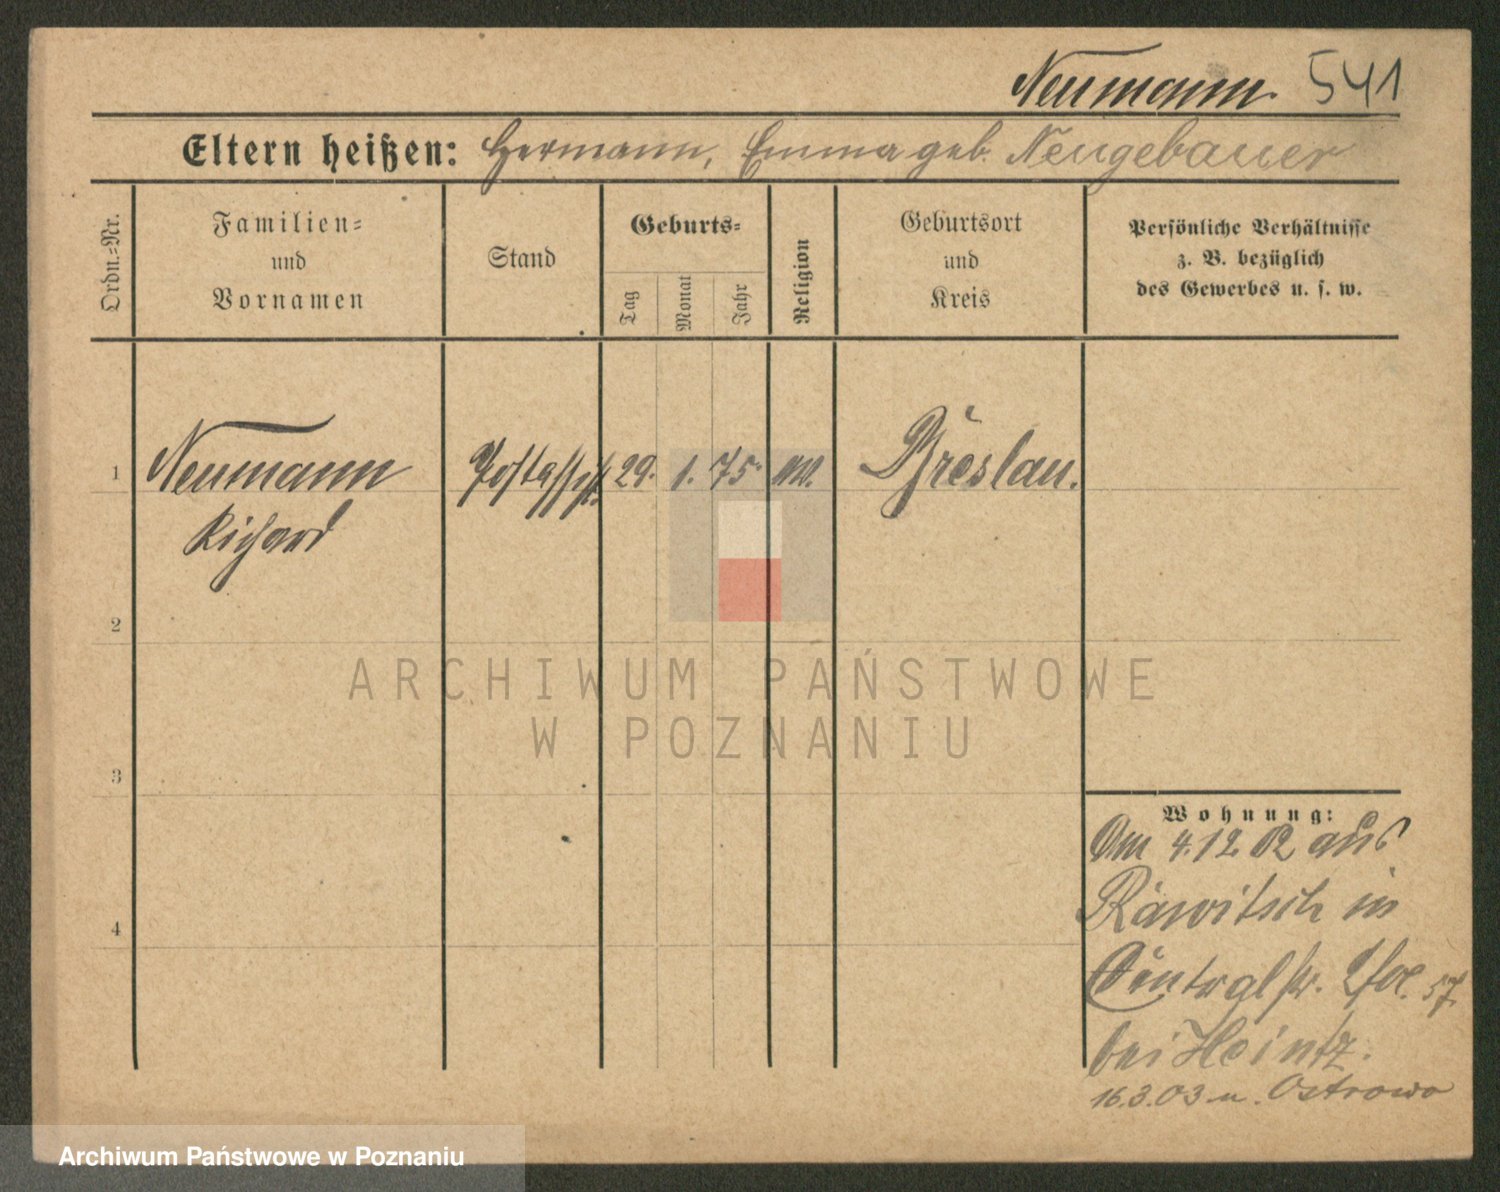 Neumann. 541
Eltern heißen: Hermann, Emma geb. Neugebauer
Ordn.-Nr.
Familien-
und
Vornamen
Stand
Geburts-
Tag
Monat
Jahr
Religion
Geburtsort
und
Kreis
Persönliche Verhältnisse
z. B. bezüglich
des Gewerbes u. s. w.
1
Neumann
Richard
Postassist.
29. 1. 75.
Breslau.
2
3
4
Wohnung:
Am 4.12.02 aus
Rawitsch in
bei Heintz.
16.3.03 n. Ostrowo
ARCHIWUM PAŃSTWOWE
W POZNANIU
Archiwum Państwowe w Poznaniu